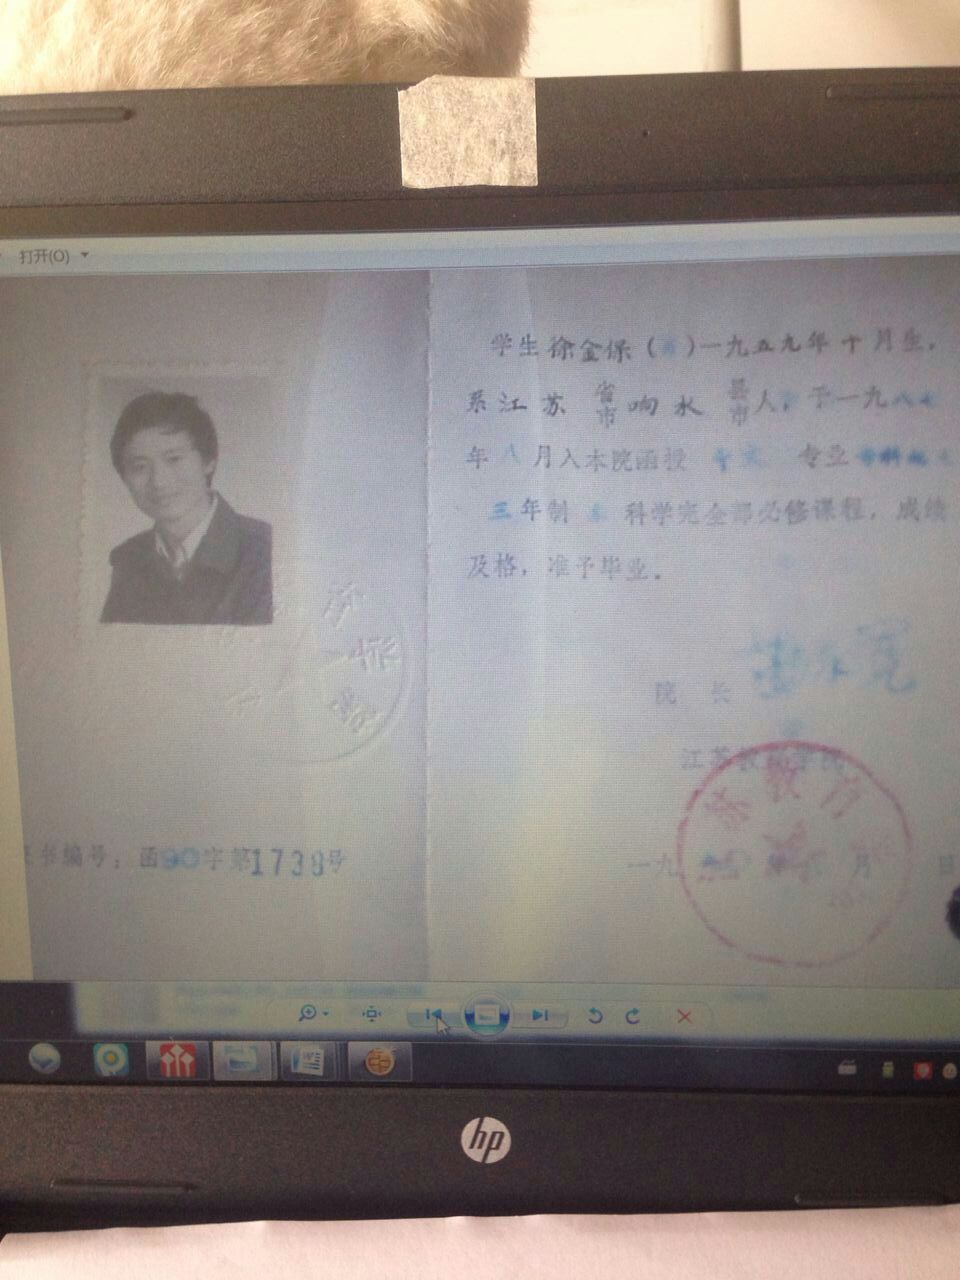 打开(O)
学生徐金保()一九五九年十月生，
系江苏省市响水县市人，于一九八七
年八月入本院函授中文专业
三年制 科学完全部必修课程，成绩
及格，准予毕业。
院长
江苏教育学院
苏教育
证书编号：函90字第1738号
一九 年 月 日
hp